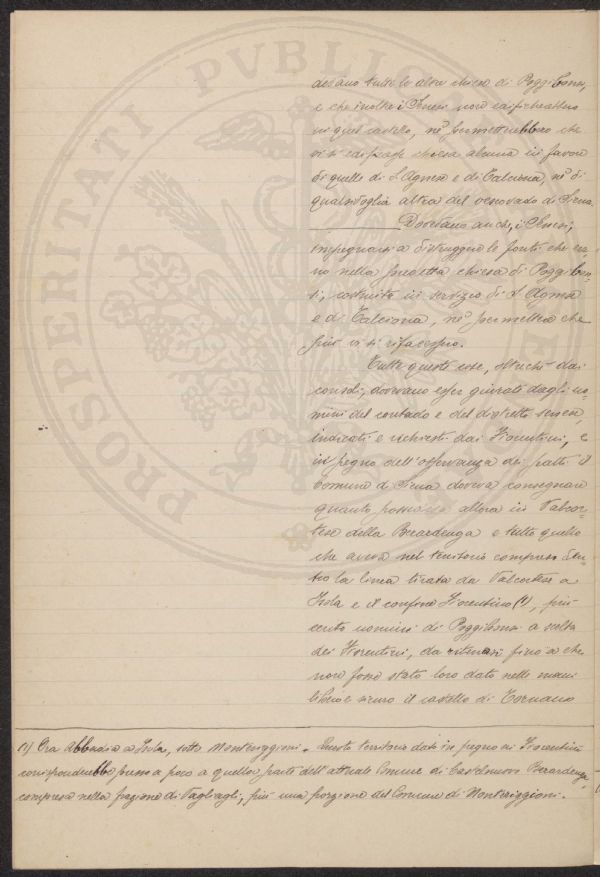 devano tutte le altre chiese di Poggibonsi,
e che inoltre i Senesi non edificherebbero
in quel castello, nè permetterebbero che
vi si edificasse chiesa alcuna in favore
di quelle di S. Agnese e di Talciona, nè di
qualsivoglia altra del vescovado di Siena.
Dovevano anche, i Senesi,
impegnarsi a distruggere le fonti che era-
no nella predetta chiesa di Poggibon-
si, costruite in servizio di S. Agnese
e di Talciona, nè permettere che
più vi si rifacessero.
Tutte queste cose, oltrechè dai
consoli, dovevano esser giurate dagli uo-
mini del contado e del distretto senese,
indicati e richiesti dai Fiorentini, e
in pegno dell'osservanza dei patti il
Comune di Siena doveva consegnare
quanto possedeva allora in Valcor-
tese della Berardenga e tutto quello
che aveva nel territorio compreso den-
tro la linea tirata da Valcortese a
Isola e il confine Fiorentino (1), più
cento uomini di Poggibonsi a scelta
dei Fiorentini, da ritenersi fino a che
non fosse stato loro dato nelle mani
libero e sicuro il castello di Tornano
(1) Ora Abbadia a Isola, sotto Monteriggioni. Questo territorio dato in pegno ai Fiorentini
corrisponderebbe presso a poco a quella parte dell'attuale Comune di Castelnuovo Berardenga,
compresa nella frazione di Vagliagli, più una porzione del Comune di Monteriggioni.
PROSPERITATI PVBLICAE